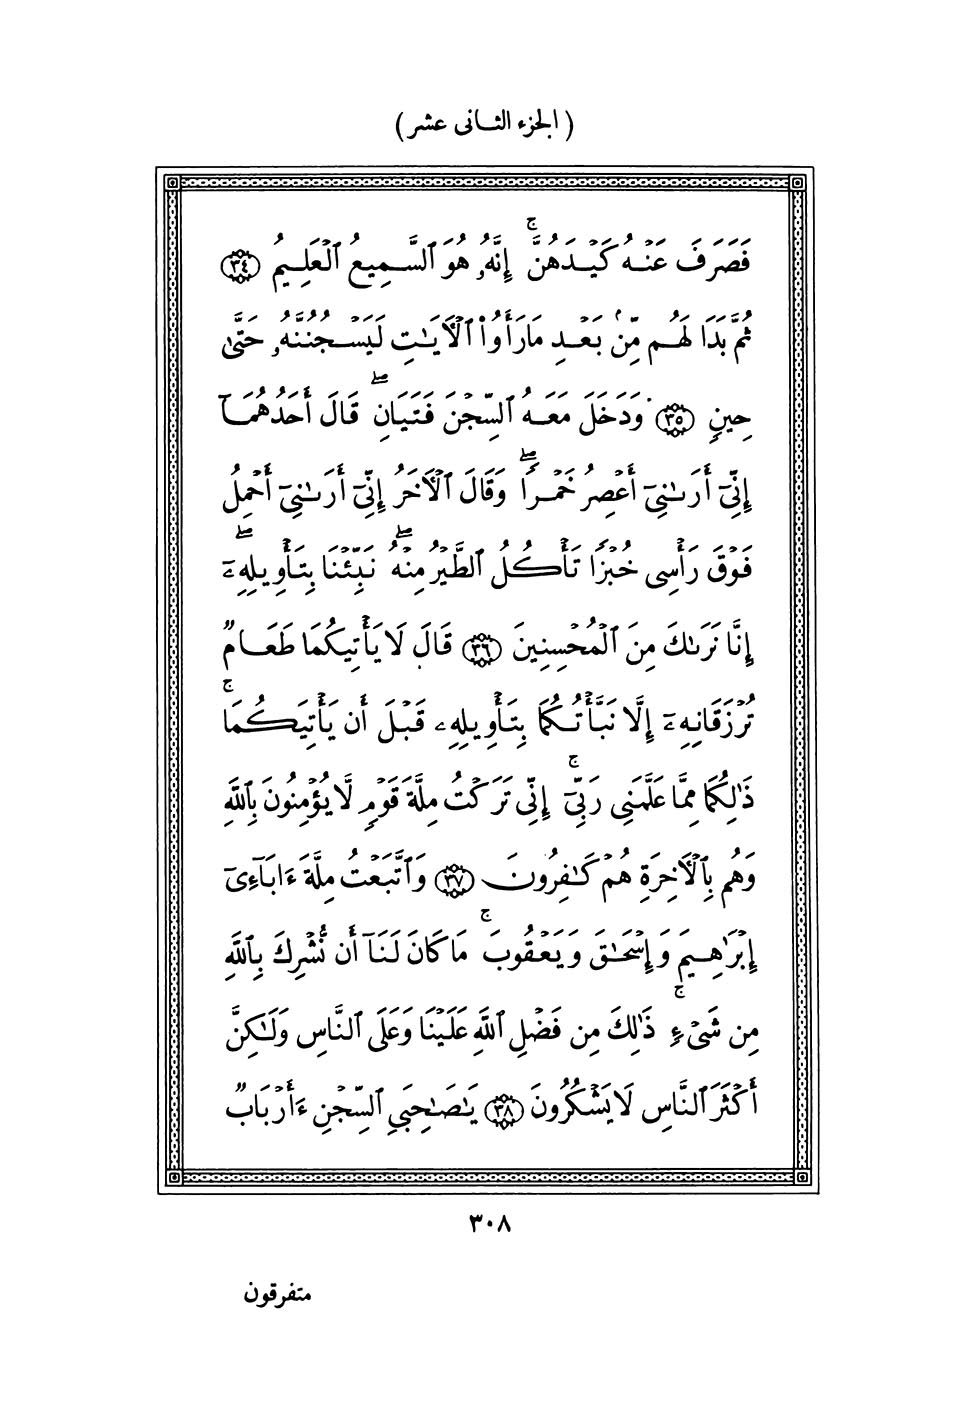 ( الجزء الثانى عشر )
فَصَرَفَ عَنۡهُ كَيۡدَهُنَّۚ إِنَّهُۥ هُوَ ٱلسَّمِيعُ ٱلۡعَلِيمُ ٣٤
ثُمَّ بَدَا لَهُم مِّنۢ بَعۡدِ مَا رَأَوُاْ ٱلۡأٓيَٰتِ لَيَسۡجُنُنَّهُۥ حَتَّىٰ
حِينٖ ٣٥ وَدَخَلَ مَعَهُ ٱلسِّجۡنَ فَتَيَانِۖ قَالَ أَحَدُهُمَآ
إِنِّيٓ أَرَىٰنِيٓ أَعۡصِرُ خَمۡرٗاۖ وَقَالَ ٱلۡأٓخَرُ إِنِّيٓ أَرَىٰنِيٓ أَحۡمِلُ
فَوۡقَ رَأۡسِي خُبۡزٗا تَأۡكُلُ ٱلطَّيۡرُ مِنۡهُۖ نَبِّئۡنَا بِتَأۡوِيلِهِۦٓۖ
إِنَّا نَرَىٰكَ مِنَ ٱلۡمُحۡسِنِينَ ٣٦ قَالَ لَا يَأۡتِيكُمَا طَعَامٞ
تُرۡزَقَانِهِۦٓ إِلَّا نَبَّأۡتُكُمَا بِتَأۡوِيلِهِۦ قَبۡلَ أَن يَأۡتِيَكُمَاۚ
ذَٰلِكُمَا مِمَّا عَلَّمَنِي رَبِّيٓۚ إِنِّي تَرَكۡتُ مِلَّةَ قَوۡمٖ لَّا يُؤۡمِنُونَ بِٱللَّهِ
وَهُم بِٱلۡأٓخِرَةِ هُمۡ كَٰفِرُونَ ٣٧ وَٱتَّبَعۡتُ مِلَّةَ ءَابَآءِيٓ
إِبۡرَٰهِيمَ وَإِسۡحَٰقَ وَيَعۡقُوبَۚ مَا كَانَ لَنَآ أَن نُّشۡرِكَ بِٱللَّهِ
مِن شَيۡءٖۚ ذَٰلِكَ مِن فَضۡلِ ٱللَّهِ عَلَيۡنَا وَعَلَى ٱلنَّاسِ وَلَٰكِنَّ
أَكۡثَرَ ٱلنَّاسِ لَا يَشۡكُرُونَ ٣٨ يَٰصَٰحِبَيِ ٱلسِّجۡنِ ءَأَرۡبَابٞ
٣٠٨
متفرقون